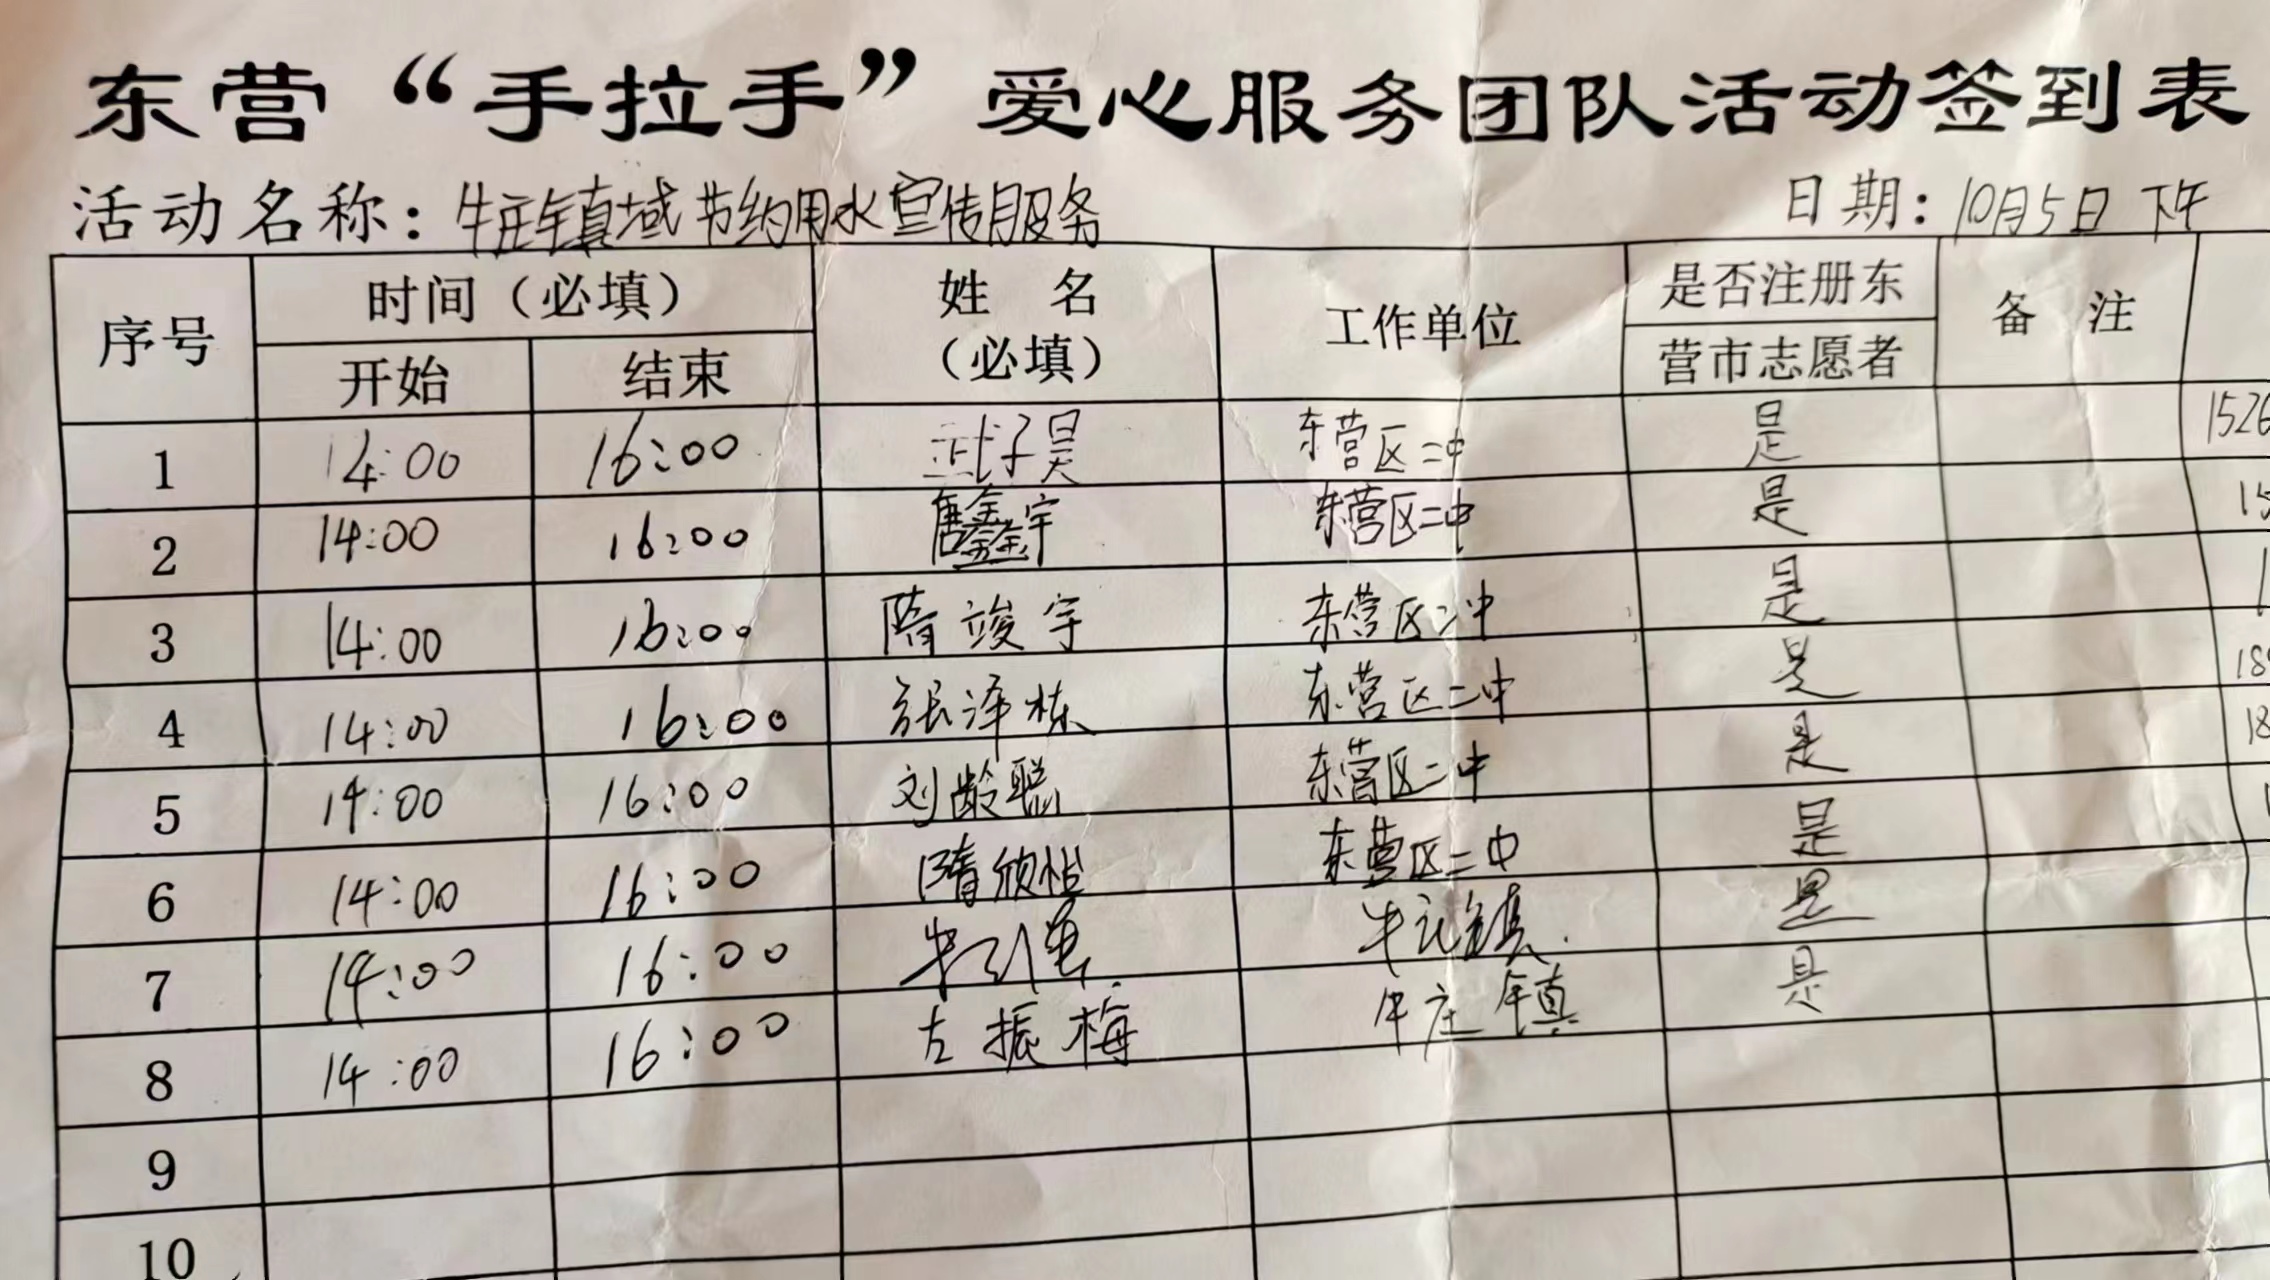 东营“手拉手”爱心服务团队活动签到表
活动名称：牛庄镇域节约用水宣传月服务 日期：10月5日 下午
序号 时间（必填） 姓 名（必填） 工作单位 是否注册东营市志愿者 备 注
开始 结束
1 14:00 16:00 武子昊 东营区二中 是 1526
2 14:00 16:00 唐鑫宇 东营区二中 是 15
3 14:00 16:00 隋竣宇 东营区二中 是 1
4 14:00 16:00 张泽栋 东营区二中 是 18
5 14:00 16:00 刘龄聪 东营区二中 是 18
6 14:00 16:00 隋欣怡 东营区二中 是
7 14:00 16:00 牛庄镇 是
8 14:00 16:00 左振梅 牛庄镇 是
9
10